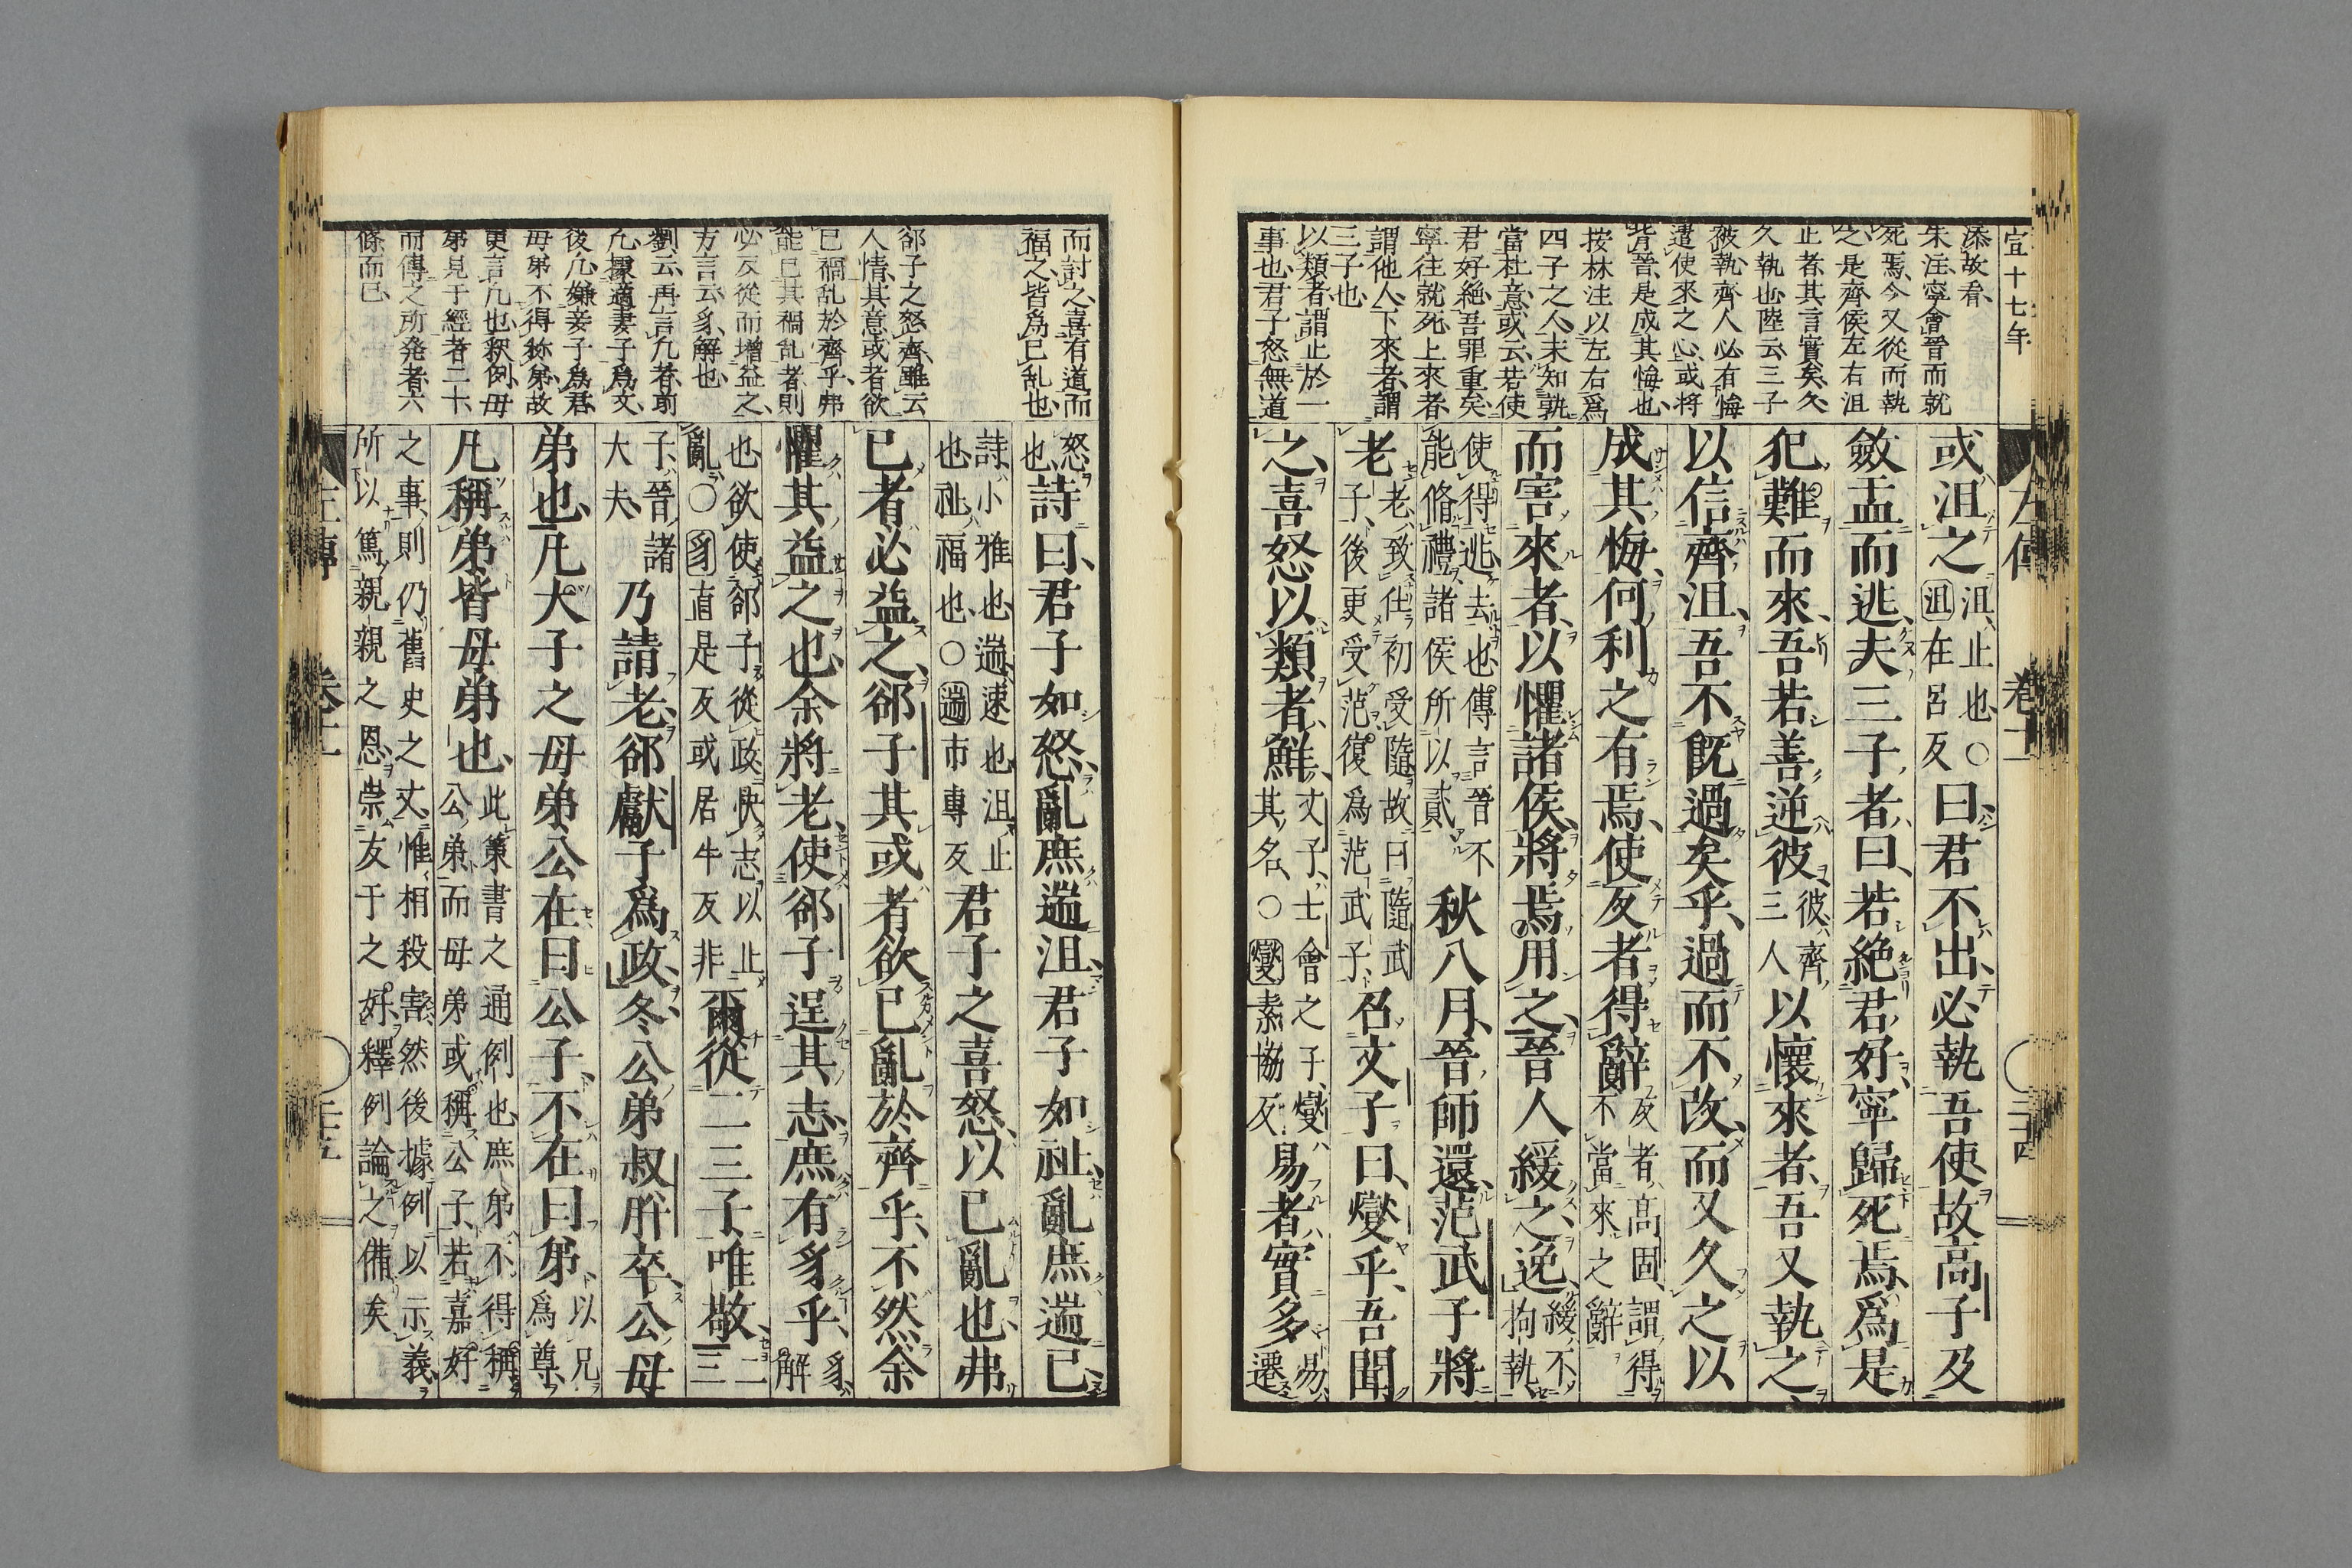 宣十七年
左傳
卷十一
二十四
添故看
朱注寧會晉而就
死焉今又從而執
之是齊侯左右沮
止者其言實矣久
久執也陸云三子
被執齊人必有悔
遣使來之心或將
背晉是成其悔也
按林注以左右爲
四子之人末知孰
當杜意或云若使
君好絶吾罪重矣
寧往就死上來者
謂他人下來者謂
三子也
以類者謂止於一
事也君子怒無道
或沮之沮止也○沮在呂反曰君不出必執吾使故高子及
斂盂而逃夫三子者曰若絶君好寧歸死焉爲是
犯難而來吾若善逆彼彼齊三人以懷來者吾又執之
以信齊沮吾不既過矣乎過而不改而又久之以
成其悔何利之有焉使反者得辭反者高固謂得不當來之辭
而害來者以懼諸侯將焉用之晉人緩之逸緩不拘執
使得逃去也傳言晉不能脩禮諸侯所以貳秋八月晉師還范武子將
老老致仕初受隨故曰隨武子後更受范復爲范武子召文子曰燮乎吾聞
之喜怒以類者鮮文子士會之子燮其名○燮素協反易者實多易遷
而討之喜有道而
福之皆爲已乱也
郤子之怒齊雖云
人情其意或者欲
已禍乱於齊乎弗
能已其禍乱者則
必反從而増益之
方言云豸解也
劉云再言凢者前
凢據適妻子爲文
後凢嫌妾子爲君
母弟不得称弟故
更言凢也釈例母
弟見于經者二十
而傳之所発者六
條而已
怒也詩曰君子如怒亂庶遄沮君子如祉亂庶遄已
詩小雅也遄速也沮止也祉福也○遄市專反君子之喜怒以已亂也弗
已者必益之郤子其或者欲已亂於齊乎不然余
懼其益之也余將老使郤子逞其志庶有豸乎豸解
也欲使郤子從政快志以止亂○豸直是反或居牛反非爾從二三子唯敬二三
子晉諸大夫乃請老郤獻子爲政冬公弟叔肸卒公母
弟也凡大子之母弟公在曰公子不在曰弟以兄爲尊
凡稱弟皆母弟也此策書之通例也庶弟不得稱公弟而母弟或稱公子若嘉好
之事則仍舊史之文惟相殺害然後據例以示義所以篤親親之恩崇友于之好釋例論之備矣
左傳
卷十一
二十五